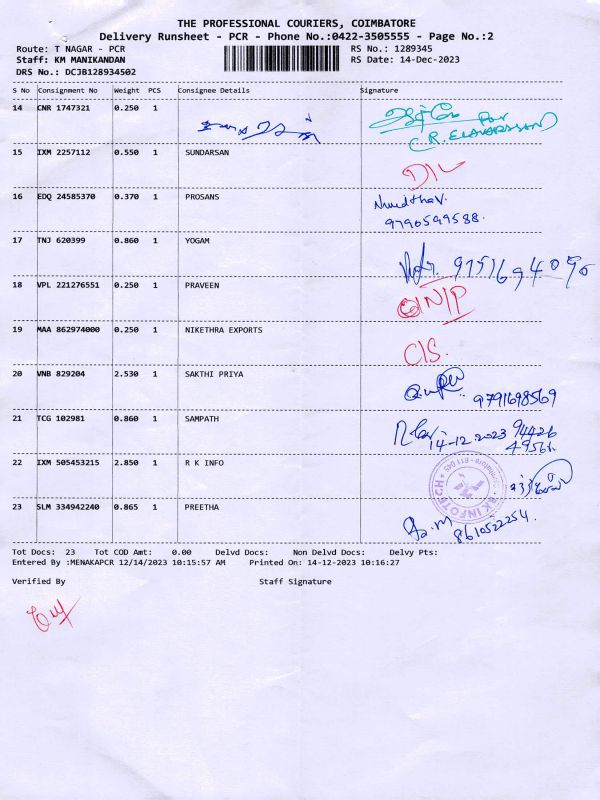 THE PROFESSIONAL COURIERS, COIMBATORE
Delivery Runsheet - PCR - Phone No.:0422-3505555 - Page No.:2
Route: T NAGAR - PCR RS No.: 1289345
Staff: KM MANIKANDAN RS Date: 14-Dec-2023
DRS No.: DCJB128934502
S No Consignment No Weight PCS Consignee Details Signature
14 CNR 1747321 0.250 1
For
C.R. ELAVARASAN
15 IXM 2257112 0.550 1 SUNDARSAN
D/L
16 EDQ 24585370 0.370 1 PROSANS
9790599588.
17 TNJ 620399 0.860 1 YOGAM
9751694090
18 VPL 221276551 0.250 1 PRAVEEN
N/P
19 MAA 862974000 0.250 1 NIKETHRA EXPORTS
C/S.
20 VNB 829204 2.530 1 SAKTHI PRIYA
9791698569
21 TCG 102981 0.860 1 SAMPATH
14-12-2023 94426
22 IXM 505453215 2.850 1 R K INFO
23 SLM 334942240 0.865 1 PREETHA
8610522254.
Tot Docs: 23 Tot COD Amt: 0.00 Delvd Docs: Non Delvd Docs: Delvy Pts:
Entered By :MENAKAPCR 12/14/2023 10:15:57 AM Printed On: 14-12-2023 10:16:27
Verified By Staff Signature